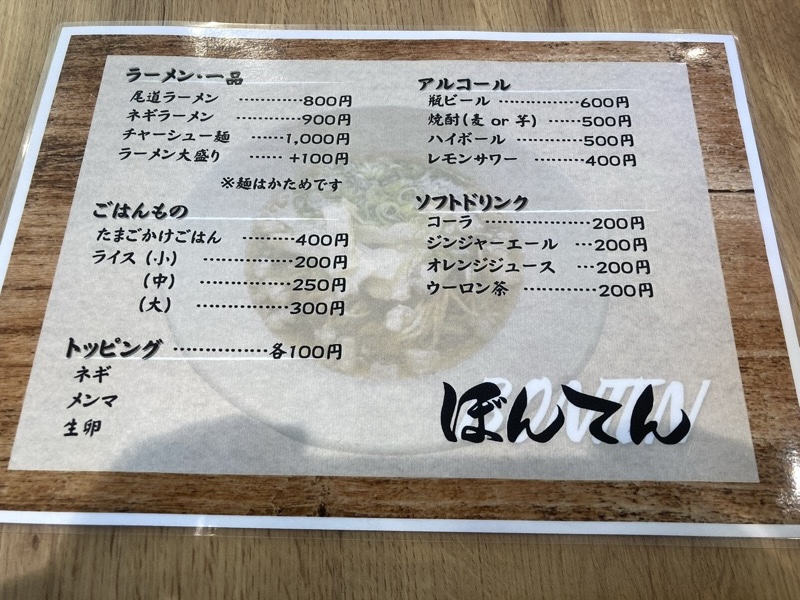 ラーメン・一品
尾道ラーメン …………800円
ネギラーメン …………900円
チャーシュー麺 ……1,000円
ラーメン大盛り ……+100円
※麺はかためです
ごはんもの
たまごかけごはん ………400円
ライス(小) …………200円
(中) …………250円
(大) …………300円
トッピング ……………各100円
ネギ
メンマ
生卵
アルコール
瓶ビール ……………600円
焼酎(麦 or 芋) ……500円
ハイボール …………500円
レモンサワー ………400円
ソフトドリンク
コーラ …………………200円
ジンジャーエール …200円
オレンジジュース …200円
ウーロン茶 …………200円
BONTEN
ぼんてん